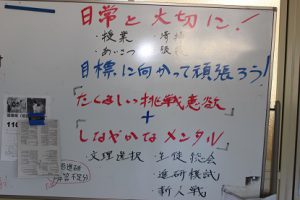 日常を大切に!
・授業 ・清掃
・あいさつ ・後始末
目標に向かって頑張ろう!
「たくましい挑戦意欲
+
しなやかなメンタル」
・文理選択 ・生徒総会
・進研模試
・新人戦
110